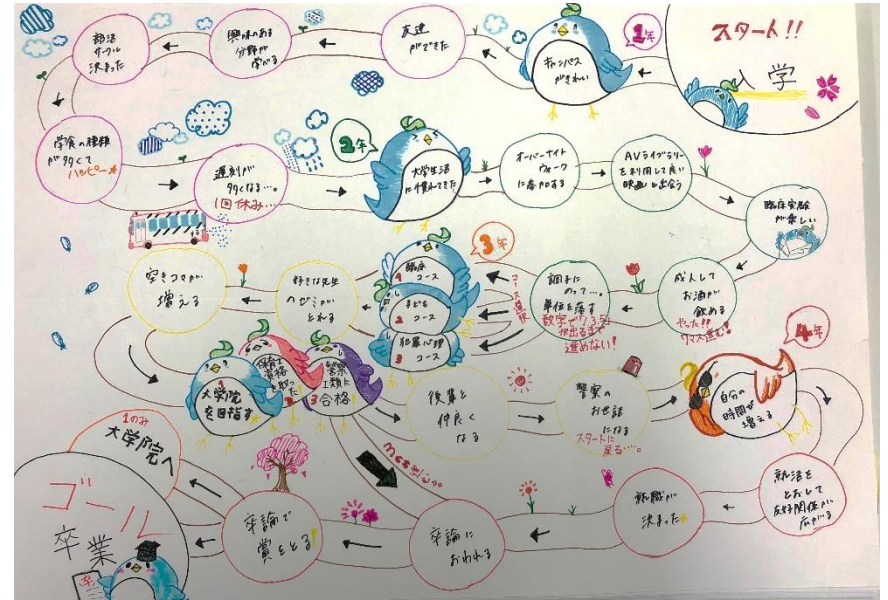 スタート!!
入学
1年
キャンパス
がきれい
友達
ができた
興味のある
分野が
学べる
部活
サークル
決まった
学食の種類
が多くて
ハッピー☆
遅刻が
多くなる…。
1回休み…
2年
大学生活
に慣れてきた
オーバーナイト
ウォーク
に参加する
AVライブラリー
を利用して良い
映画に出会う
臨床実験
が楽しい
成人して
お酒が
飲める
やった!!
進む!
調子に
のって…。
単位を落す
数字で1,3,5
が出るまで
進めない!
コース選択
3年
1 臨床
コース
2 子ども
コース
3 犯罪心理
コース
好きな先生
のゼミが
とれる
空きコマが
増える
1
大学院
を目指す
2
保育士
資格
を取った
3
警察
1類に
合格!
後輩と
仲良く
なる
警察の
お世話
になる
スタートに
戻る…。
4年
自分の
時間が
増える
就活を
とおして
友好関係が
広がる
就職が
決まった
卒論に
おわれる
卒論で
賞をとる!
1のみ
大学院へ
ゴール
卒業
卒